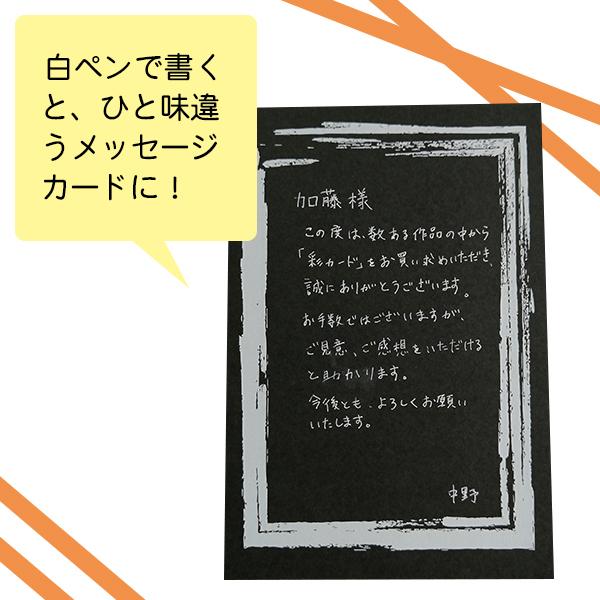 白ペンで書く
と、ひと味違
うメッセージ
カードに！
加藤様
この度は、数ある作品の中から
「彩カード」をお買い求めいただき、
誠にありがとうございます。
お手数ではございますが、
ご見意、ご感想をいただける
と助かります。
今後とも、よろしくお願い
いたします。
中野